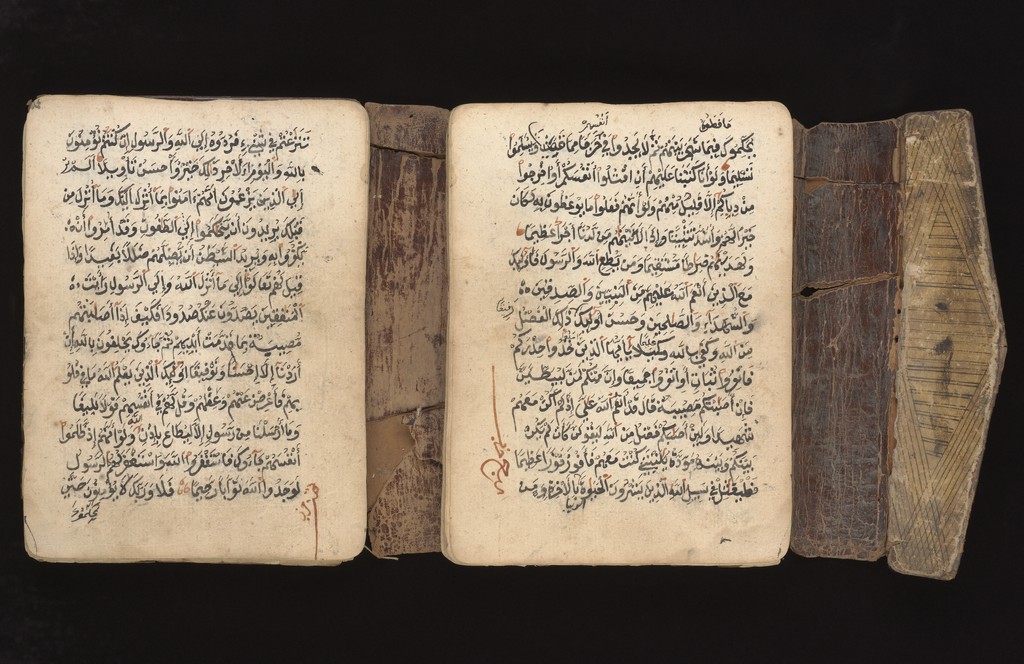 تنزعتم في شيء فردوه إلى الله والرسول إن كنتم تؤمنون
بالله واليوم الاخر ذلك خير وأحسن تأويلا الم تر
إلى الذين يزعمون أنهم ءامنوا بما أنزل اليك وما أنزل من
قبلك يريدون أن يتحاكموا إلى الطغوت وقد أمروا أن
يكفروا به ويريد الشيطن أن يضلهم ضللا بعيدا وإذا
قيل لهم تعالوا إلى ما أنزل الله وإلى الرسول رأيت
المنفقين يصدون عنك صدودا فكيف إذا أصبتهم
مصيبة بما قدمت أيديهم ثم جاءوك يحلفون بالله إن
أردنا إلا إحسنا وتوفيقا أولئك الذين يعلم الله ما في قلو
بهم فأعرض عنهم وعظهم وقل لهم في أنفسهم قولا بليغا
وما أرسلنا من رسول إلا ليطاع بإذن الله ولو أنهم إذ ظلموا
أنفسهم جاءوك فاستغفروا الله واستغفر لهم الرسول
لوجدوا الله توابا رحيما فلا وربك لا يؤمنون حتى
يحكموك
أنفسهم
يحكموك فيما شجر بينهم ثم لا يجدوا في حرجا مما قضيت ويسلموا
تسليما ولو أنا كتبنا عليهم أن اقتلوا أنفسكم أو اخرجوا
من ديركم ما فعلوه إلا قليل منهم ولو أنهم فعلوا ما يوعظون به لكان
خيرا لهم وأشد تثبيتا وإذا لأتينهم من لدنا أجرا عظيما
ولهدينهم صرطا مستقيما ومن يطع الله والرسول فأولئك
مع الذين أنعم الله عليهم من النبيين والصديقين
والشهداء والصلحين وحسن أولئك رفيقا ذلك الفضل
من الله وكفى بالله عليما يأيها الذين خذوا حذركم
فانفروا ثبات أو انفروا جميعا وإن منكم لمن ليبطئن
فإن أصبتكم مصيبة قال قد أنعم الله علي إذ لم أكن معهم
شهيدا ولئن أصبكم فضل من الله ليقولن كأن لم تكن
بينكم وبينه مودة يليتني كنت معهم فأفوز فوزا عظيما
فليقتل في سبيل الله الذين يشرون الحيوة بالاخرة ومن